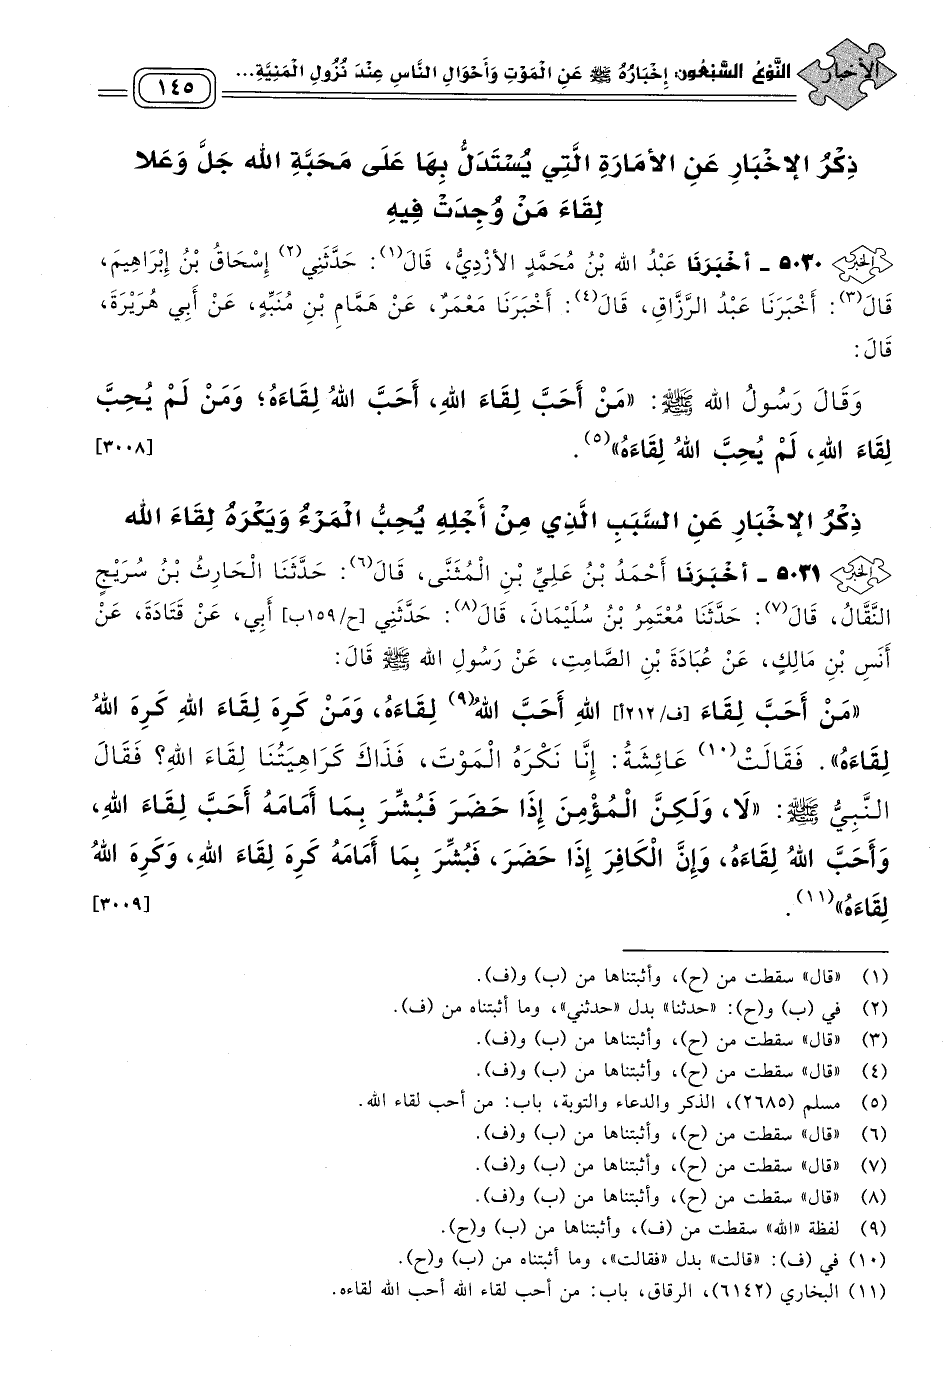 الأخبار
النَّوْعُ السَّبْعُون: إخْبَارُهُ ﷺ عَنِ الْمَوْتِ وَأَحْوَالِ النَّاسِ عِنْدَ نُزُولِ الْمَنِيَّةِ...
١٤٥
ذِكْرُ الإخْبَارِ عَنِ الأَمَارَةِ الَّتِي يُسْتَدَلُّ بِهَا عَلَى مَحَبَّةِ الله جَلَّ وَعَلا
لِقَاءَ مَنْ وُجِدَتْ فِيهِ
٥٠٣٠ ـ أَخْبَرَنَا عَبْدُ الله بْنُ مُحَمَّدٍ الأَزْدِيُّ، قَالَ(١): حَدَّثَنِي(٢) إِسْحَاقُ بْنُ إِبْرَاهِيمَ،
قَالَ(٣): أَخْبَرَنَا عَبْدُ الرَّزَّاقِ، قَالَ(٤): أَخْبَرَنَا مَعْمَرٌ، عَنْ هَمَّامِ بْنِ مُنَبِّهٍ، عَنْ أَبِي هُرَيْرَةَ،
قَالَ:
وَقَالَ رَسُولُ الله ﷺ: «مَنْ أَحَبَّ لِقَاءَ اللهِ، أَحَبَّ اللهُ لِقَاءَهُ؛ وَمَنْ لَمْ يُحِبَّ
لِقَاءَ اللهِ، لَمْ يُحِبَّ اللهُ لِقَاءَهُ»(٥). [٣٠٠٨]
ذِكْرُ الإخْبَارِ عَنِ السَّبَبِ الَّذِي مِنْ أَجْلِهِ يُحِبُّ الْمَرْءُ وَيَكْرَهُ لِقَاءَ الله
٥٠٣١ ـ أَخْبَرَنَا أَحْمَدُ بْنُ عَلِيِّ بْنِ الْمُثَنَّى، قَالَ(٦): حَدَّثَنَا الْحَارِثُ بْنُ سُرَيْجٍ
النَّقَّالُ، قَالَ(٧): حَدَّثَنَا مُعْتَمِرُ بْنُ سُلَيْمَانَ، قَالَ(٨): حَدَّثَنِي [ح/١٥٩ب] أَبِي، عَنْ قَتَادَةَ، عَنْ
أَنَسِ بْنِ مَالِكٍ، عَنْ عُبَادَةَ بْنِ الصَّامِتِ، عَنْ رَسُولِ الله ﷺ قَالَ:
«مَنْ أَحَبَّ لِقَاءَ [ف/٢١٢أ] اللهِ أَحَبَّ اللهُ(٩) لِقَاءَهُ، وَمَنْ كَرِهَ لِقَاءَ اللهِ كَرِهَ اللهُ
لِقَاءَهُ». فَقَالَتْ(١٠) عَائِشَةُ: إِنَّا نَكْرَهُ الْمَوْتَ، فَذَاكَ كَرَاهِيَتُنَا لِقَاءَ اللهِ؟ فَقَالَ
النَّبِيُّ ﷺ: «لَا، وَلَكِنَّ الْمُؤْمِنَ إِذَا حَضَرَ فَبُشِّرَ بِمَا أَمَامَهُ أَحَبَّ لِقَاءَ اللهِ،
وَأَحَبَّ اللهُ لِقَاءَهُ، وَإِنَّ الْكَافِرَ إِذَا حَضَرَ، فَبُشِّرَ بِمَا أَمَامَهُ كَرِهَ لِقَاءَ اللهِ، وَكَرِهَ اللهُ
لِقَاءَهُ»(١١). [٣٠٠٩]
(١) «قال» سقطت من (ح)، وأثبتناها من (ب) و(ف).
(٢) في (ب) و(ح): «حدثنا» بدل «حدثني»، وما أثبتناه من (ف).
(٣) «قال» سقطت من (ح)، وأثبتناها من (ب) و(ف).
(٤) «قال» سقطت من (ح)، وأثبتناها من (ب) و(ف).
(٥) مسلم (٢٦٨٥)، الذكر والدعاء والتوبة، باب: من أحب لقاء الله.
(٦) «قال» سقطت من (ح)، وأثبتناها من (ب) و(ف).
(٧) «قال» سقطت من (ح)، وأثبتناها من (ب) و(ف).
(٨) «قال» سقطت من (ح)، وأثبتناها من (ب) و(ف).
(٩) لفظة «الله» سقطت من (ف)، وأثبتناها من (ب) و(ح).
(١٠) في (ف): «قالت» بدل «فقالت»، وما أثبتناه من (ب) و(ح).
(١١) البخاري (٦١٤٢)، الرقاق، باب: من أحب لقاء الله أحب الله لقاءه.